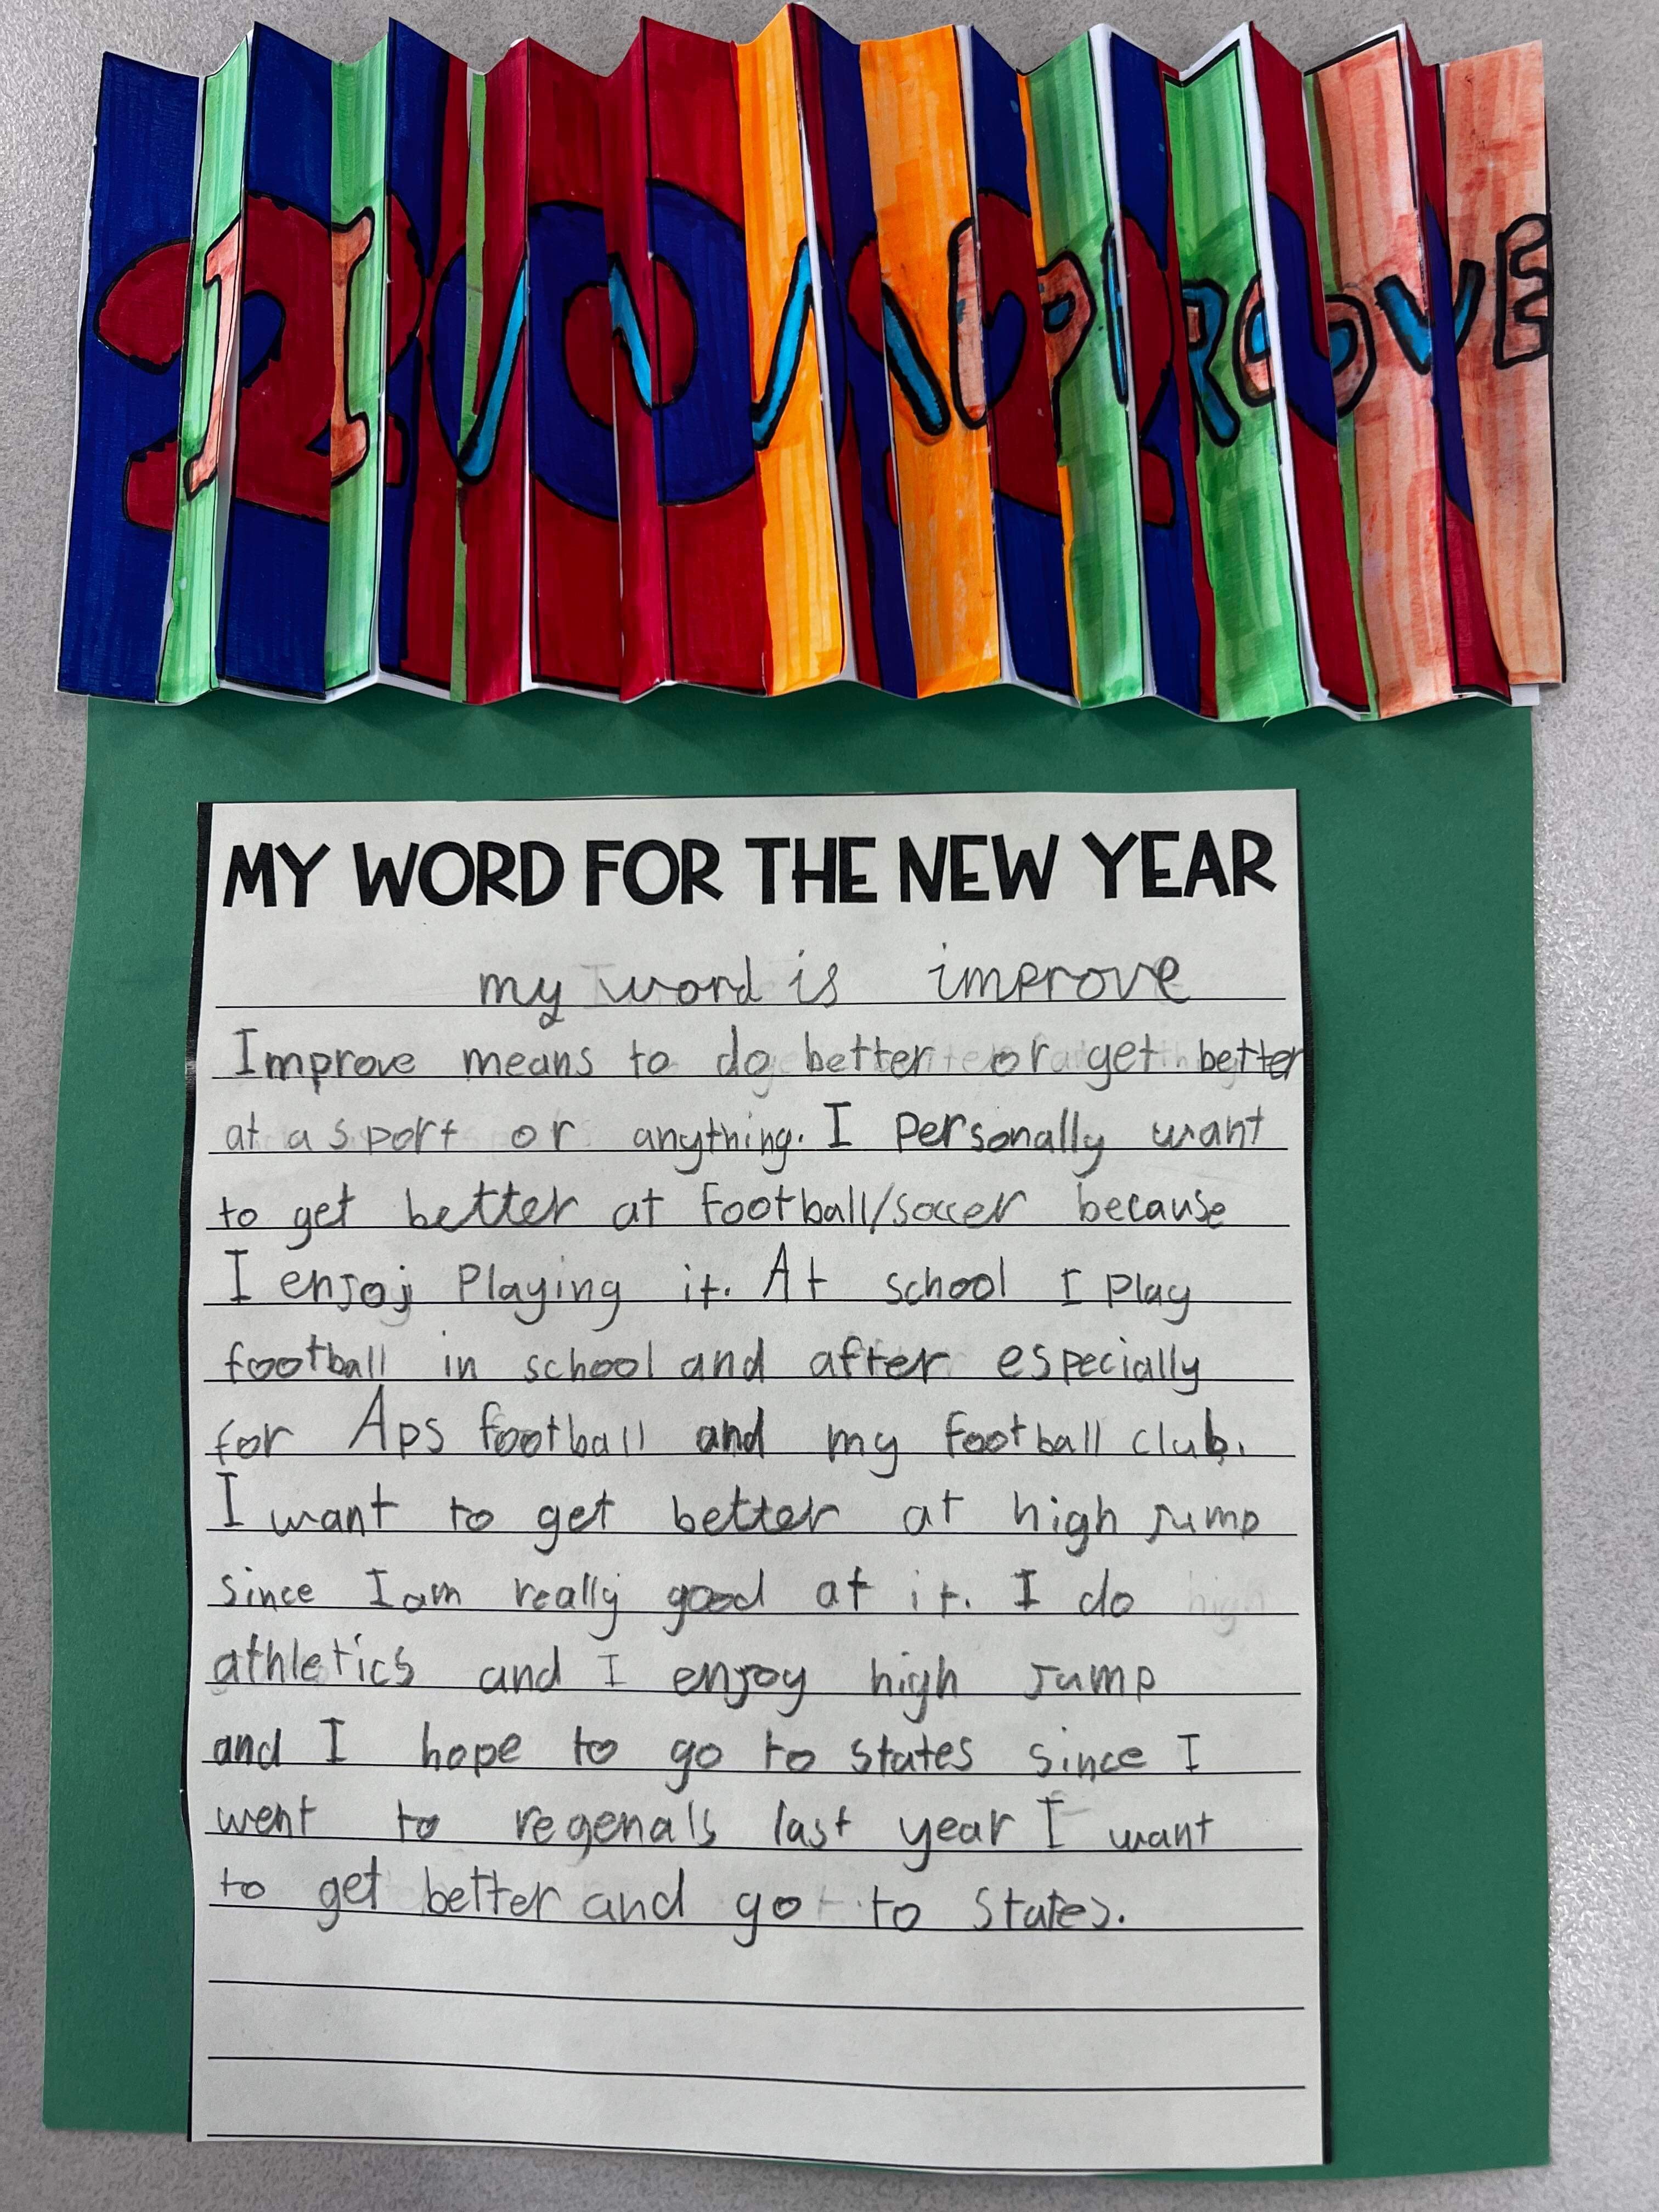 IMPROVE
MY WORD FOR THE NEW YEAR
my word is improve
Improve means to do better or get better
at a sport or anything. I Personally want
to get better at football/soccer because
I enjoy Playing it. At school I Play
football in school and after especially
for Aps football and my football club.
I want to get better at high jump
since I am really good at it. I do
athletics and I enjoy high jump
and I hope to go to states since I
went to regenals last year I want
to get better and go to states.